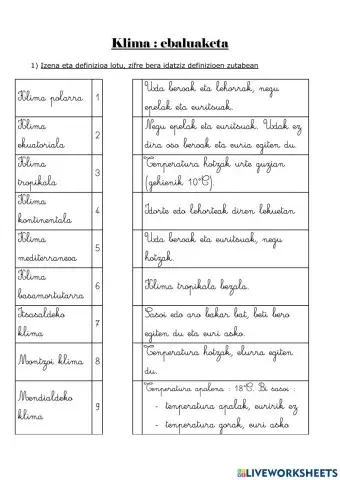 Klima : ebaluaketa
1) Izena eta definizioa lotu, zifre bera idatziz definizioen zutabean
Klima polarra 1
Klima
ekuatoriala 2
Klima
tropikala 3
Klima
kontinentala 4
Klima
mediterraneoa 5
Klima
basamortutarra 6
Itsasaldeko
klima 7
Montzoi klima 8
Mendialdeko
klima 9
Uda beroak eta lehorrak, negu
epelak eta euritsuak.
Negu epelak eta euritsuak. Udak ez
dira oso beroak eta euria egiten du.
Tenperatura hotzak urte guzian
(gehienik 10°C).
Idorte edo lehorteak diren lekuetan
Uda beroak eta euritsuak, negu
hotzak.
Klima tropikala bezala.
Sasoi edo aro bakar bat, beti bero
egiten du eta euri asko.
Tenperatura hotzak, elurra egiten
du.
Tenperatura apalena : 18°C. Bi sasoi :
- tenperatura apalak, euririk ez
- tenperatura gorak, euri asko
LIVEWORKSHEETS